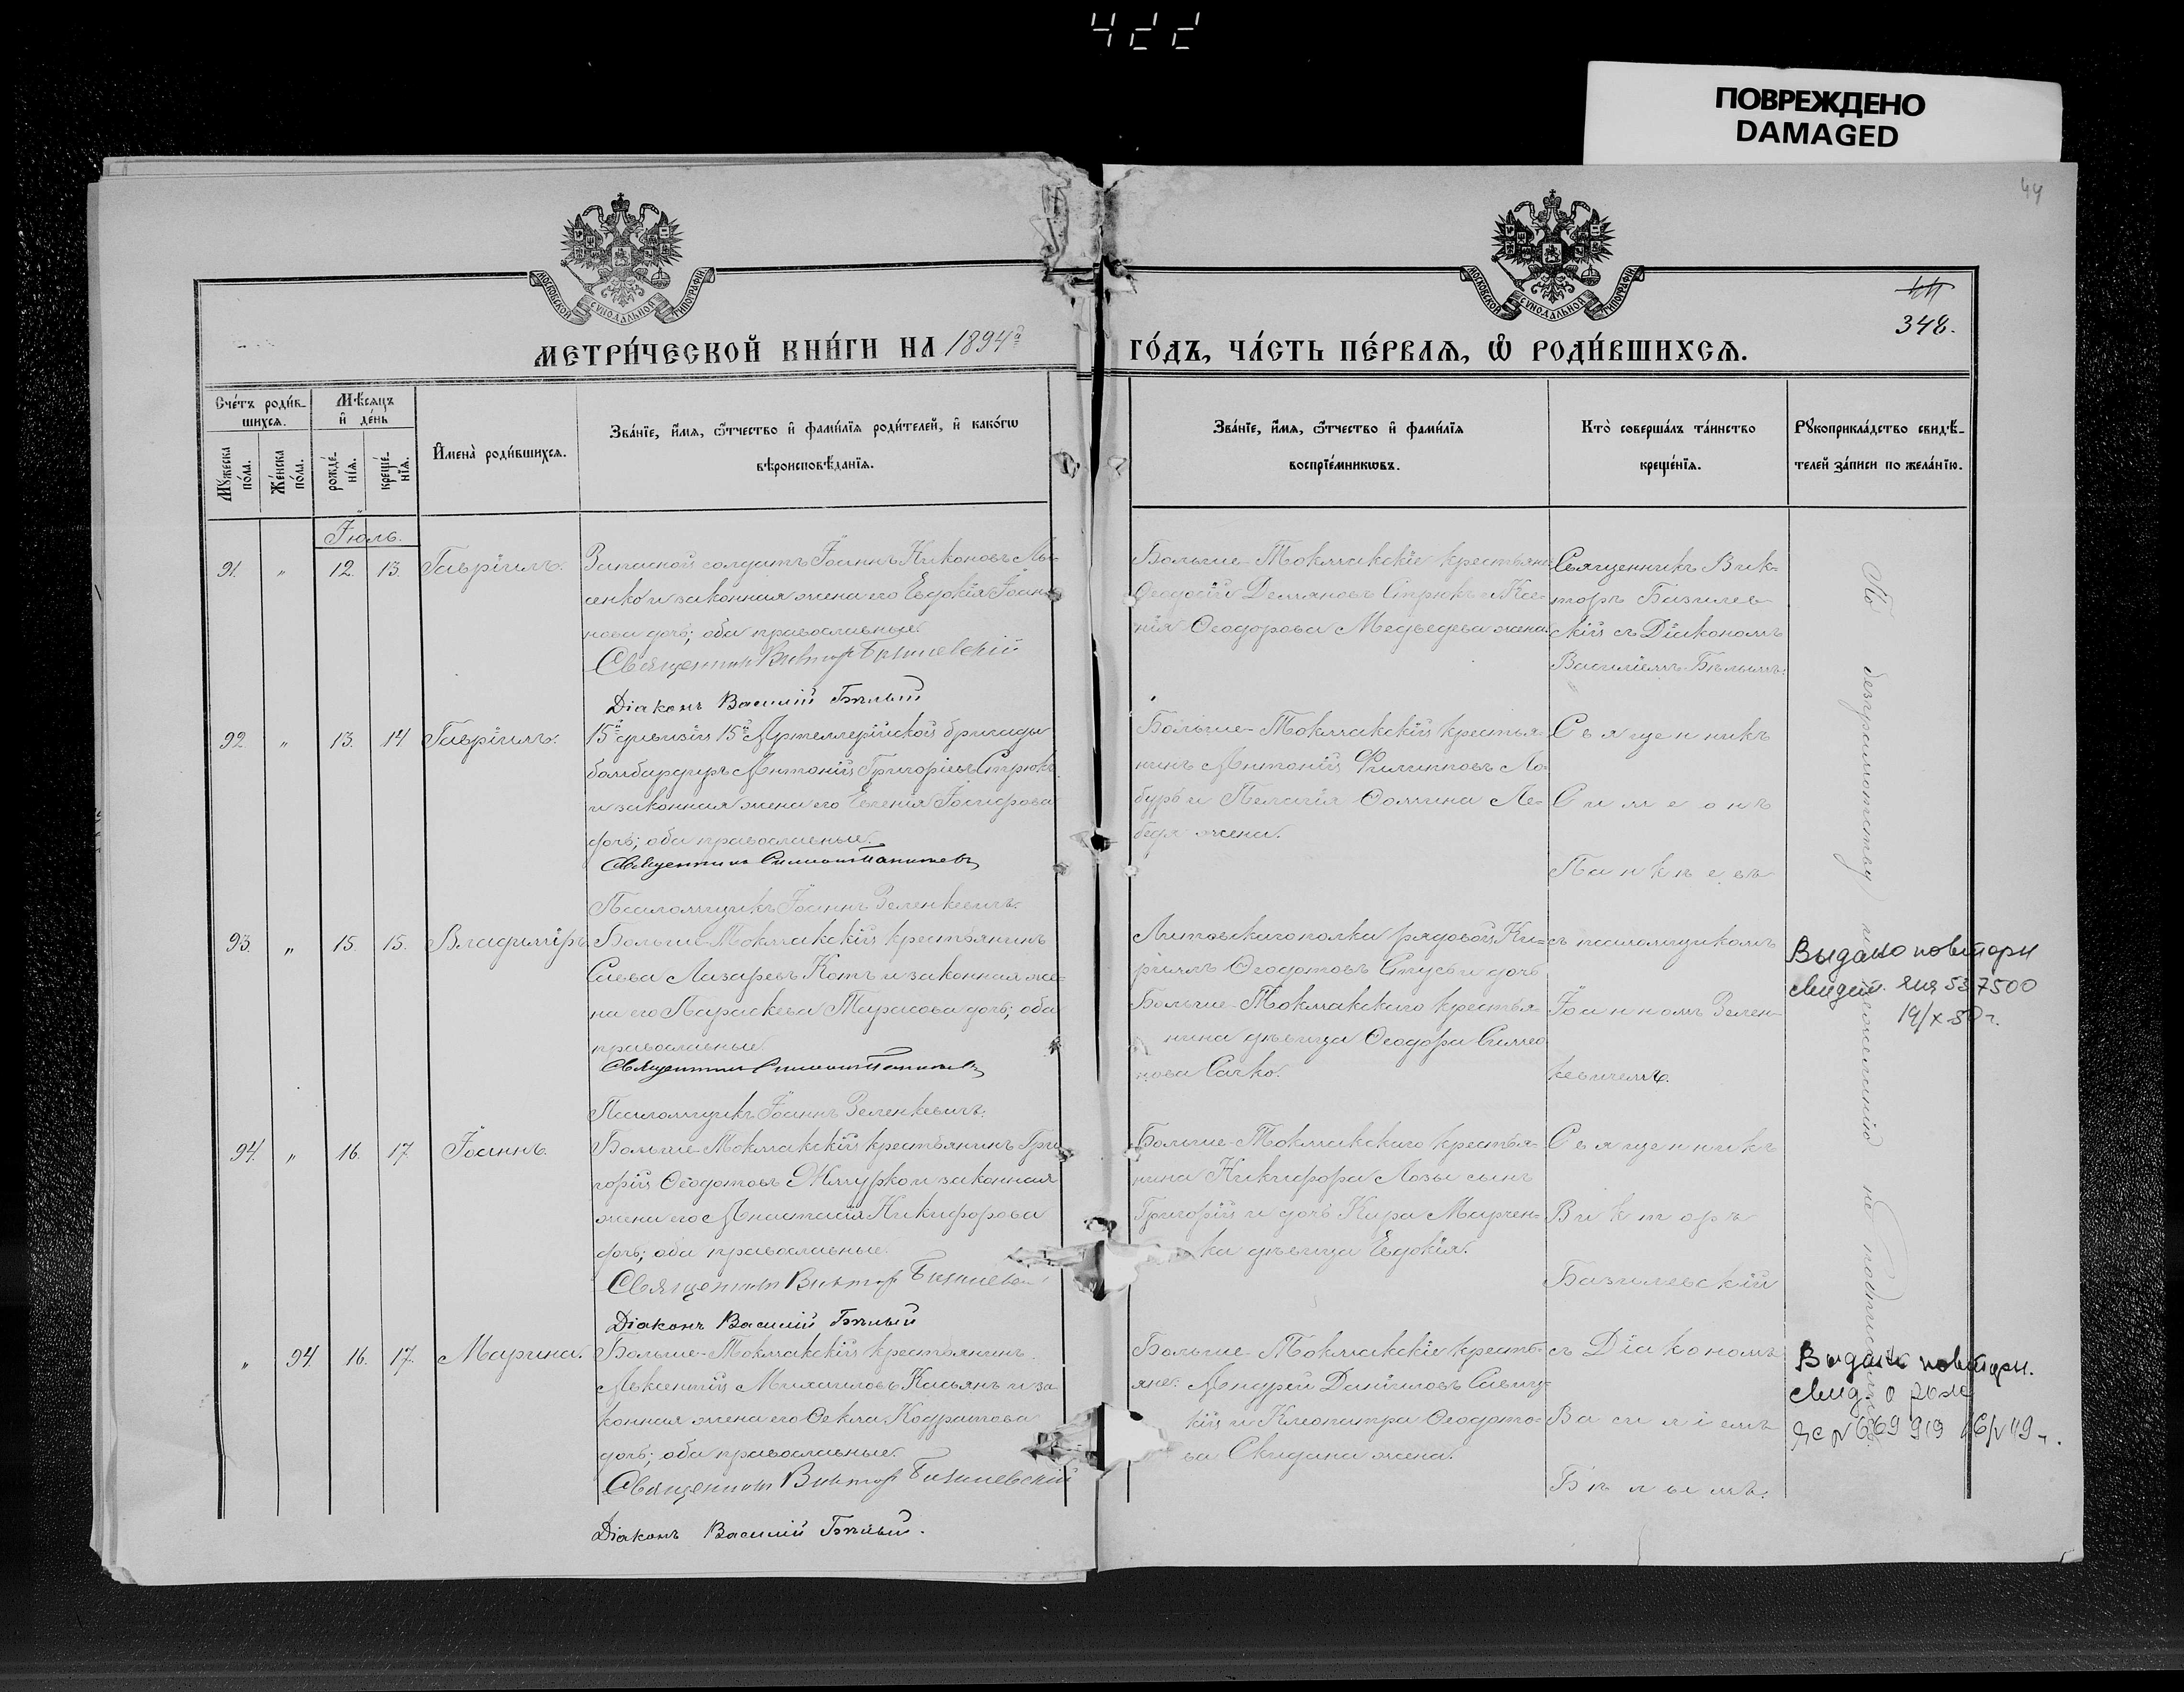 422
ПОВРЕЖДЕНО
DAMAGED
44
МОСКОВСКОЙ СѴНОДАЛЬНОЙ ТИПОГРАФІИ
МОСКОВСКОЙ СѴНОДАЛЬНОЙ ТИПОГРАФІИ
44
348.
МЕТРИ́ЧЕСКОЙ КНИ́ГИ НА 1894й
ГО́ДЪ, ЧА́СТЬ ПЕ́РВАЯ, Ѽ РОДИ́ВШИХСЯ.
Сче́тъ роди́в-
шихся.
Мѣ́сяцъ
и҆ де́нь
Му́жеска
по́ла.
Же́нска
по́ла.
рожде́-
нїя.
креще́-
нїя.
И҆мена̀ роди́вшихся.
Зва́нїе, и҆́мя, ѻ҆́тчество и҆ фами́лїя роди́телей, и҆ како́гѡ
вѣроисповѣ́данїя.
Зва́нїе, и҆́мя, ѻ҆́тчество и҆ фами́лїя
воспрїе́мникѡвъ.
Кто̀ соверша́лъ та́инство
креще́нїя.
Рꙋкоприкла́дство свидѣ́-
телей за́писи по жела́нїю.
Іюль.
91. " 12. 13. Гавріилъ.
Запасной солдатъ Іоаннъ Никоновъ Лы-
сенко и законная жена его Евдокія Іоан-
нова дочь; оба православные.
Священникъ Викторъ Базилевскій
Діаконъ Василій Бѣлый
Больше-Токмакскіе крестьяне:
Ѳеодосій Демяновъ Стрюкъ и Ксе-
нія Ѳеодорова Медведева жена.
Священникъ Вик-
торъ Базилев-
скій съ Діакономъ
Василіемъ Бѣлымъ.
92 " 13. 14 Гавріилъ.
15й дивизіи 15й Артеллерійской бригады
бомбардиръ Антоній Григорьевъ Стрюкъ
и законная жена его Евгенія Іосифова
дочь; оба православные.
Священникъ Симеонъ Панкѣевъ
Псаломщикъ Іоаннъ Зеленкевичъ.
Больше-Токмакскій крестья-
нинъ Антоній Филипповъ Ло-
буръ и Пелагія Ѳомина Ле-
бедя жена.
Священникъ
Симеонъ
Панкѣевъ
съ псаломщикомъ
Іоанномъ Зелен-
кевичемъ.
93. " 15. 15. Владиміръ.
Больше-Токмакскій крестьянинъ
Савва Лазаревъ Котъ и законная же-
на его Параскева Тарасова дочь; оба
православные
Священникъ Симеонъ Панкѣевъ
Псаломщикъ Іоаннъ Зеленкевичъ.
Литовскаго полка рядовой Ки-
риллъ Ѳеодотовъ Стусь и дочь
Больше-Токмакскаго крестья-
нина дѣвица Ѳеодора Симео-
нова Сачко.
Выдано повторн
свидет. 537500
19/X-50 г.
94. " 16. 17. Іоаннъ.
Больше-Токмакскій крестьянинъ Гри-
горій Ѳеодотовъ Жмурко и законная
жена его Анастасія Никифорова
дочь; оба православные.
Священникъ Викторъ Базилевскій
Діаконъ Василій Бѣлый
Больше-Токмакскаго крестья-
нина Никифора Лозы сынъ
Григорій и дочь Кара Марчен-
ка дѣвица Евдокія.
Священникъ
Викторъ
Базилевскій
съ Діакономъ
Василіемъ
Бѣлымъ.
" 94. 16. 17. Марина.
Больше-Токмакскій крестьянинъ
Авксентій Михаиловъ Касьянъ и за-
конная жена его Ѳекла Кодратова
дочь; оба православные.
Священникъ Викторъ Базилевскій
Діаконъ Василій Бѣлый.
Больше-Токмакскіе кресть-
яне: Андрей Даніиловъ Савиц-
кій и Клеопатра Ѳеодото-
ва Скидана жена.
Выдано повторн.
свид. о рож
№ 669919
По безграмотству и нежеланію не подписались